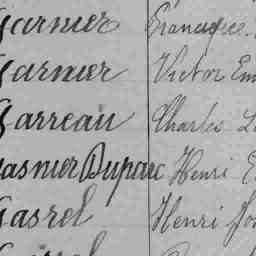 Garnier Françoise
Garnier Victor Em
Garreau Charles L
Gasnier Duparc Henri E
Gasrel Henri Jo